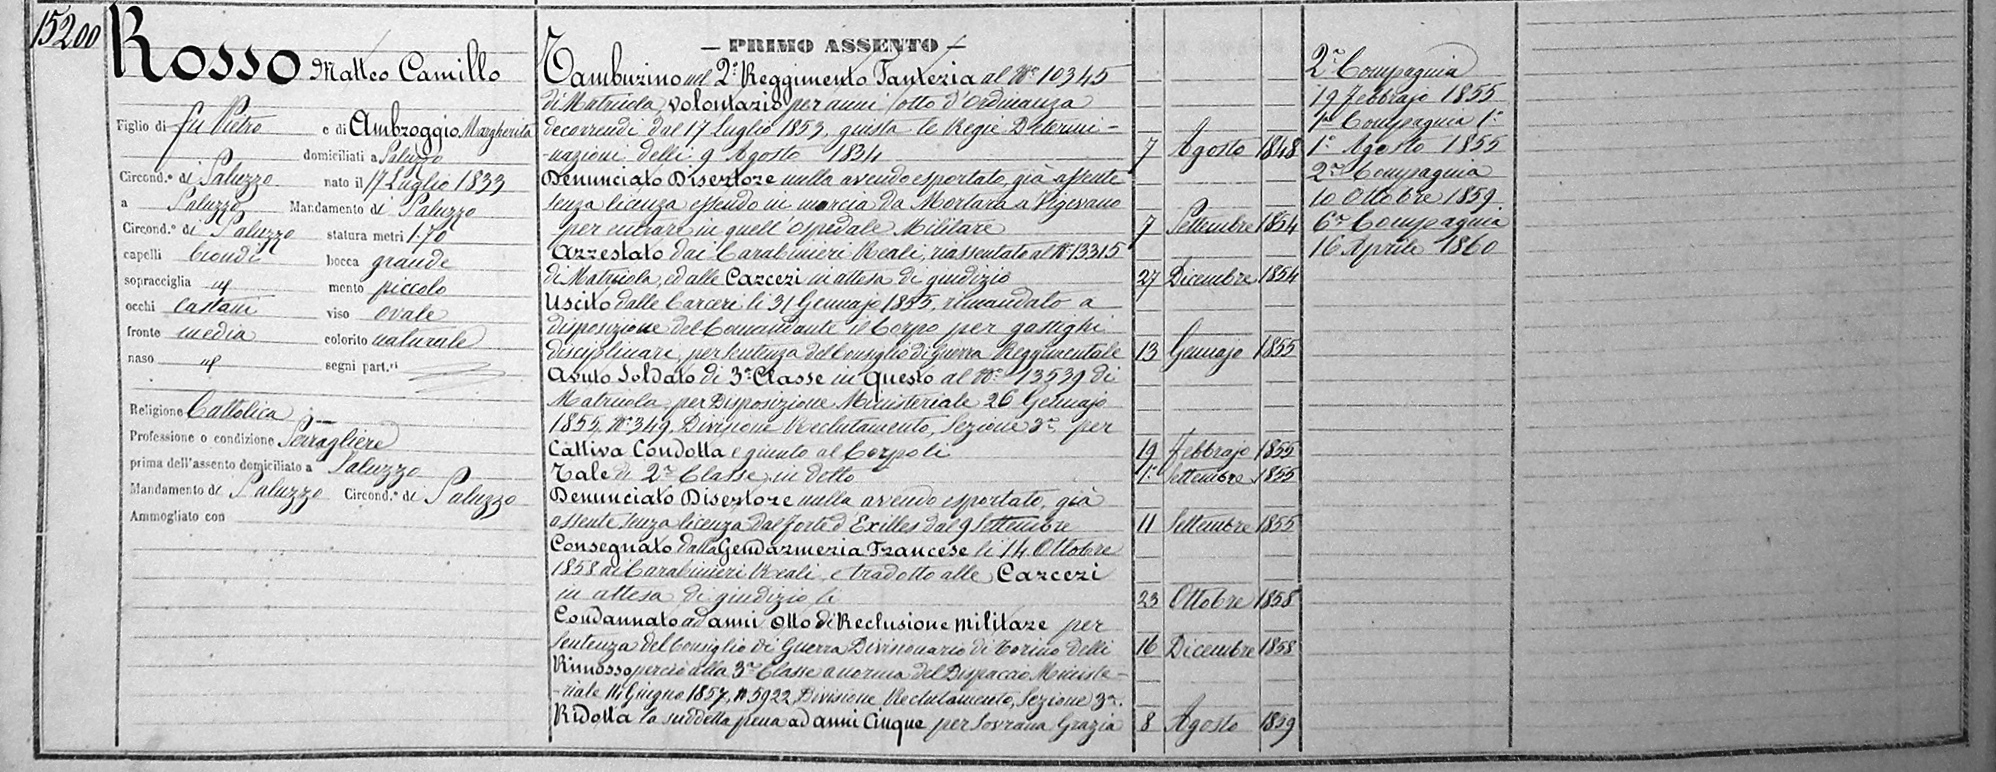 15200
Rosso Matteo Camillo
Figlio di fu Pietro e di Ambroggio Margherita
domiciliati a Saluzzo
Circond.º di Saluzzo nato il 17 Luglio 1833
a Saluzzo Mandamento di Saluzzo
Circond.º di Saluzzo statura metri 1.70
capelli biondi bocca grande
sopracciglia id mento piccolo
occhi castani viso ovale
fronte media colorito naturale
naso id segni part.ri
Religione Cattolica
Professione o condizione Serragliere
prima dell'assento domiciliato a Saluzzo
Mandamento di Saluzzo Circond.º di Saluzzo
Ammogliato con
— PRIMO ASSENTO —
Tamburino nel 2º Reggimento Fanteria al Nº 10345
di Matricola, volontario per anni otto d'Ordinanza
decorrendi dal 17 Luglio 1853, giusta le Regie Determi-
-nazioni delli 9 Agosto 1834 7 Agosto 1848
Denunciato Disertore nulla avendo esportato, già assente
senza licenza essendo in marcia da Mortara a Vigevano
per entrare in quell'Ospedale Militare 7 Settembre 1854
Arrestato dai Carabinieri Reali, riassentato al Nº 13315
di Matricola, ed alle Carceri in attesa di giudizio 27 Dicembre 1854
Uscito dalle Carceri li 31 Gennajo 1855, rimandato a
disposizione del Comandante il Corpo per gastighi
disciplinari, per sentenza del Consiglio di Guerra Reggimentale 13 Gennajo 1855
Avuto Soldato di 3ª Classe in Questo al Nº 13539 di
Matricola per Disposizione Ministeriale 26 Gennajo
1855, Nº 349, Divisione Reclutamento, Sezione 3ª, per
Cattiva Condotta e giunto al Corpo li 19 Febbrajo 1855
Tale di 2ª Classe in detto 1º Settembre 1855
Denunciato Disertore nulla avendo esportato, già
assente senza licenza dal forte d'Exilles dal 9 Settembre 11 Settembre 1855
Consegnato dalla Gendarmeria Francese li 14 Ottobre
1858 ai Carabinieri Reali, e tradotto alle Carceri
in attesa di giudizio li 23 Ottobre 1858
Condannato ad anni Otto di Reclusione Militare per
sentenza del Consiglio di Guerra Divisionario di Torino delli 16 Dicembre 1858
Rimosso perciò alla 3ª Classe a norma del Dispaccio Ministe-
-riale 14 Giugno 1857, N. 5922 Divisione Reclutamento, Sezione 3ª.
Ridotta la suddetta pena ad anni Cinque per Sovrana Grazia 8 Agosto 1859
2ª Compagnia
19 Febbrajo 1855
1ª Compagnia
1º Agosto 1855
2ª Compagnia
10 Ottobre 1859
6ª Compagnia
16 Aprile 1860